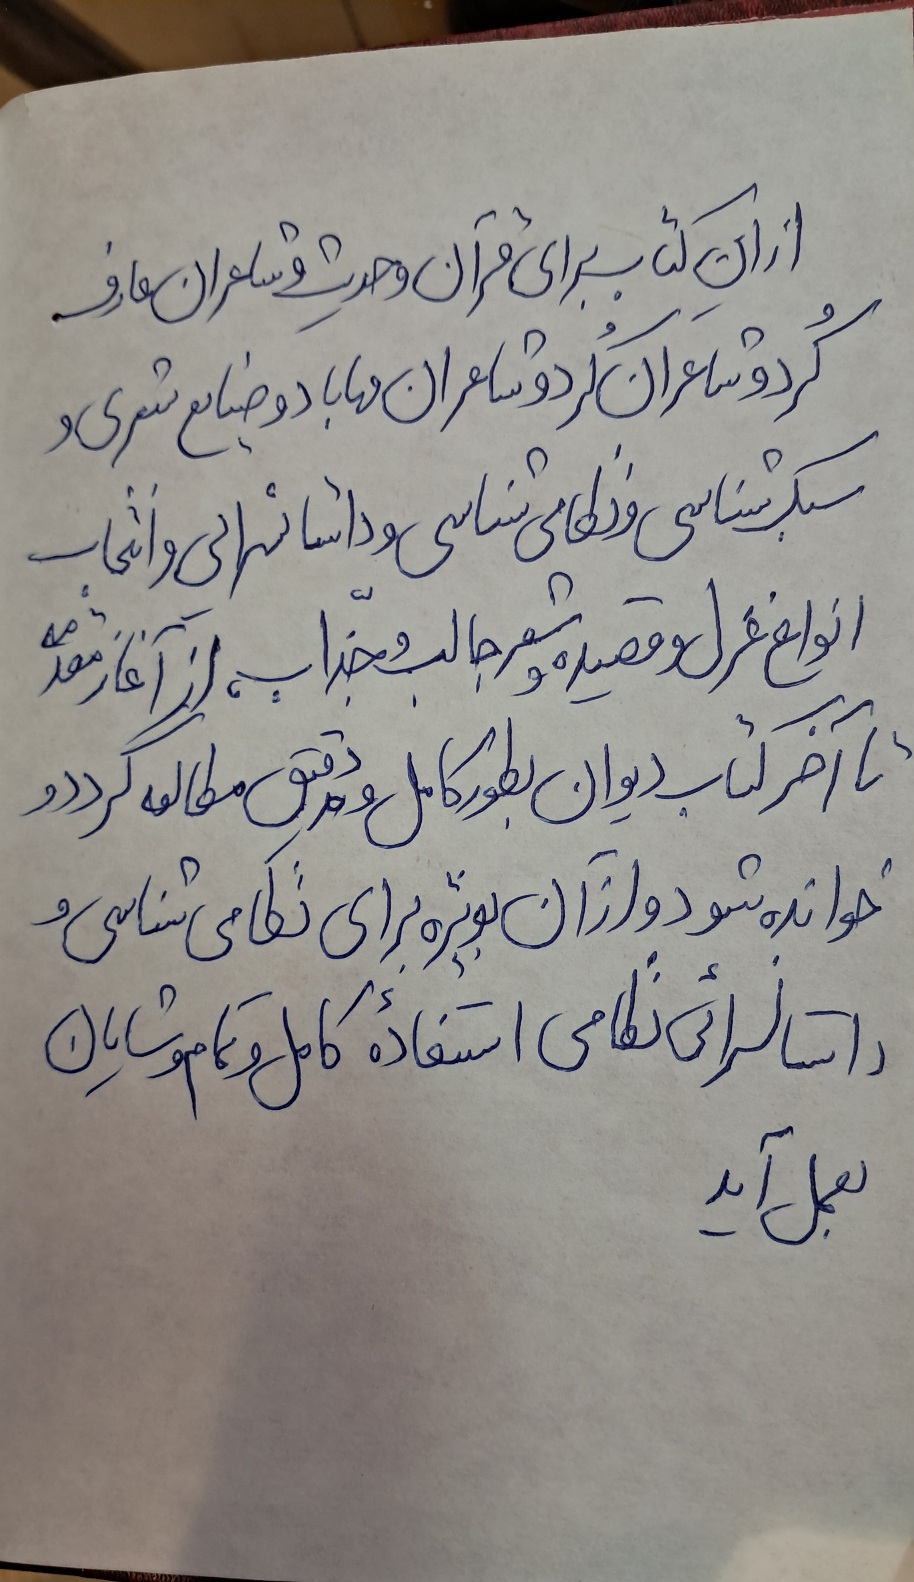 از این کتاب برای قرآن و حدیث و شاعران عارف
کُرد و شاعران کُرد و شاعران مهاباد و صنایع شعری و
سبک شناسی و نظامی شناسی و داستانسرائی و انتخاب
انواع غزل و قصیده و شعر جالب و جذّاب، از آغاز مقدمه
تا آخر کتاب دیوان بطور کامل و دقیق مطالعه گردد و
خوانده شود و از آن بویژه برای نظامی شناسی و
داستانسرائی نظامی استفادهٔ کامل و تمام و شایان
بعمل آید